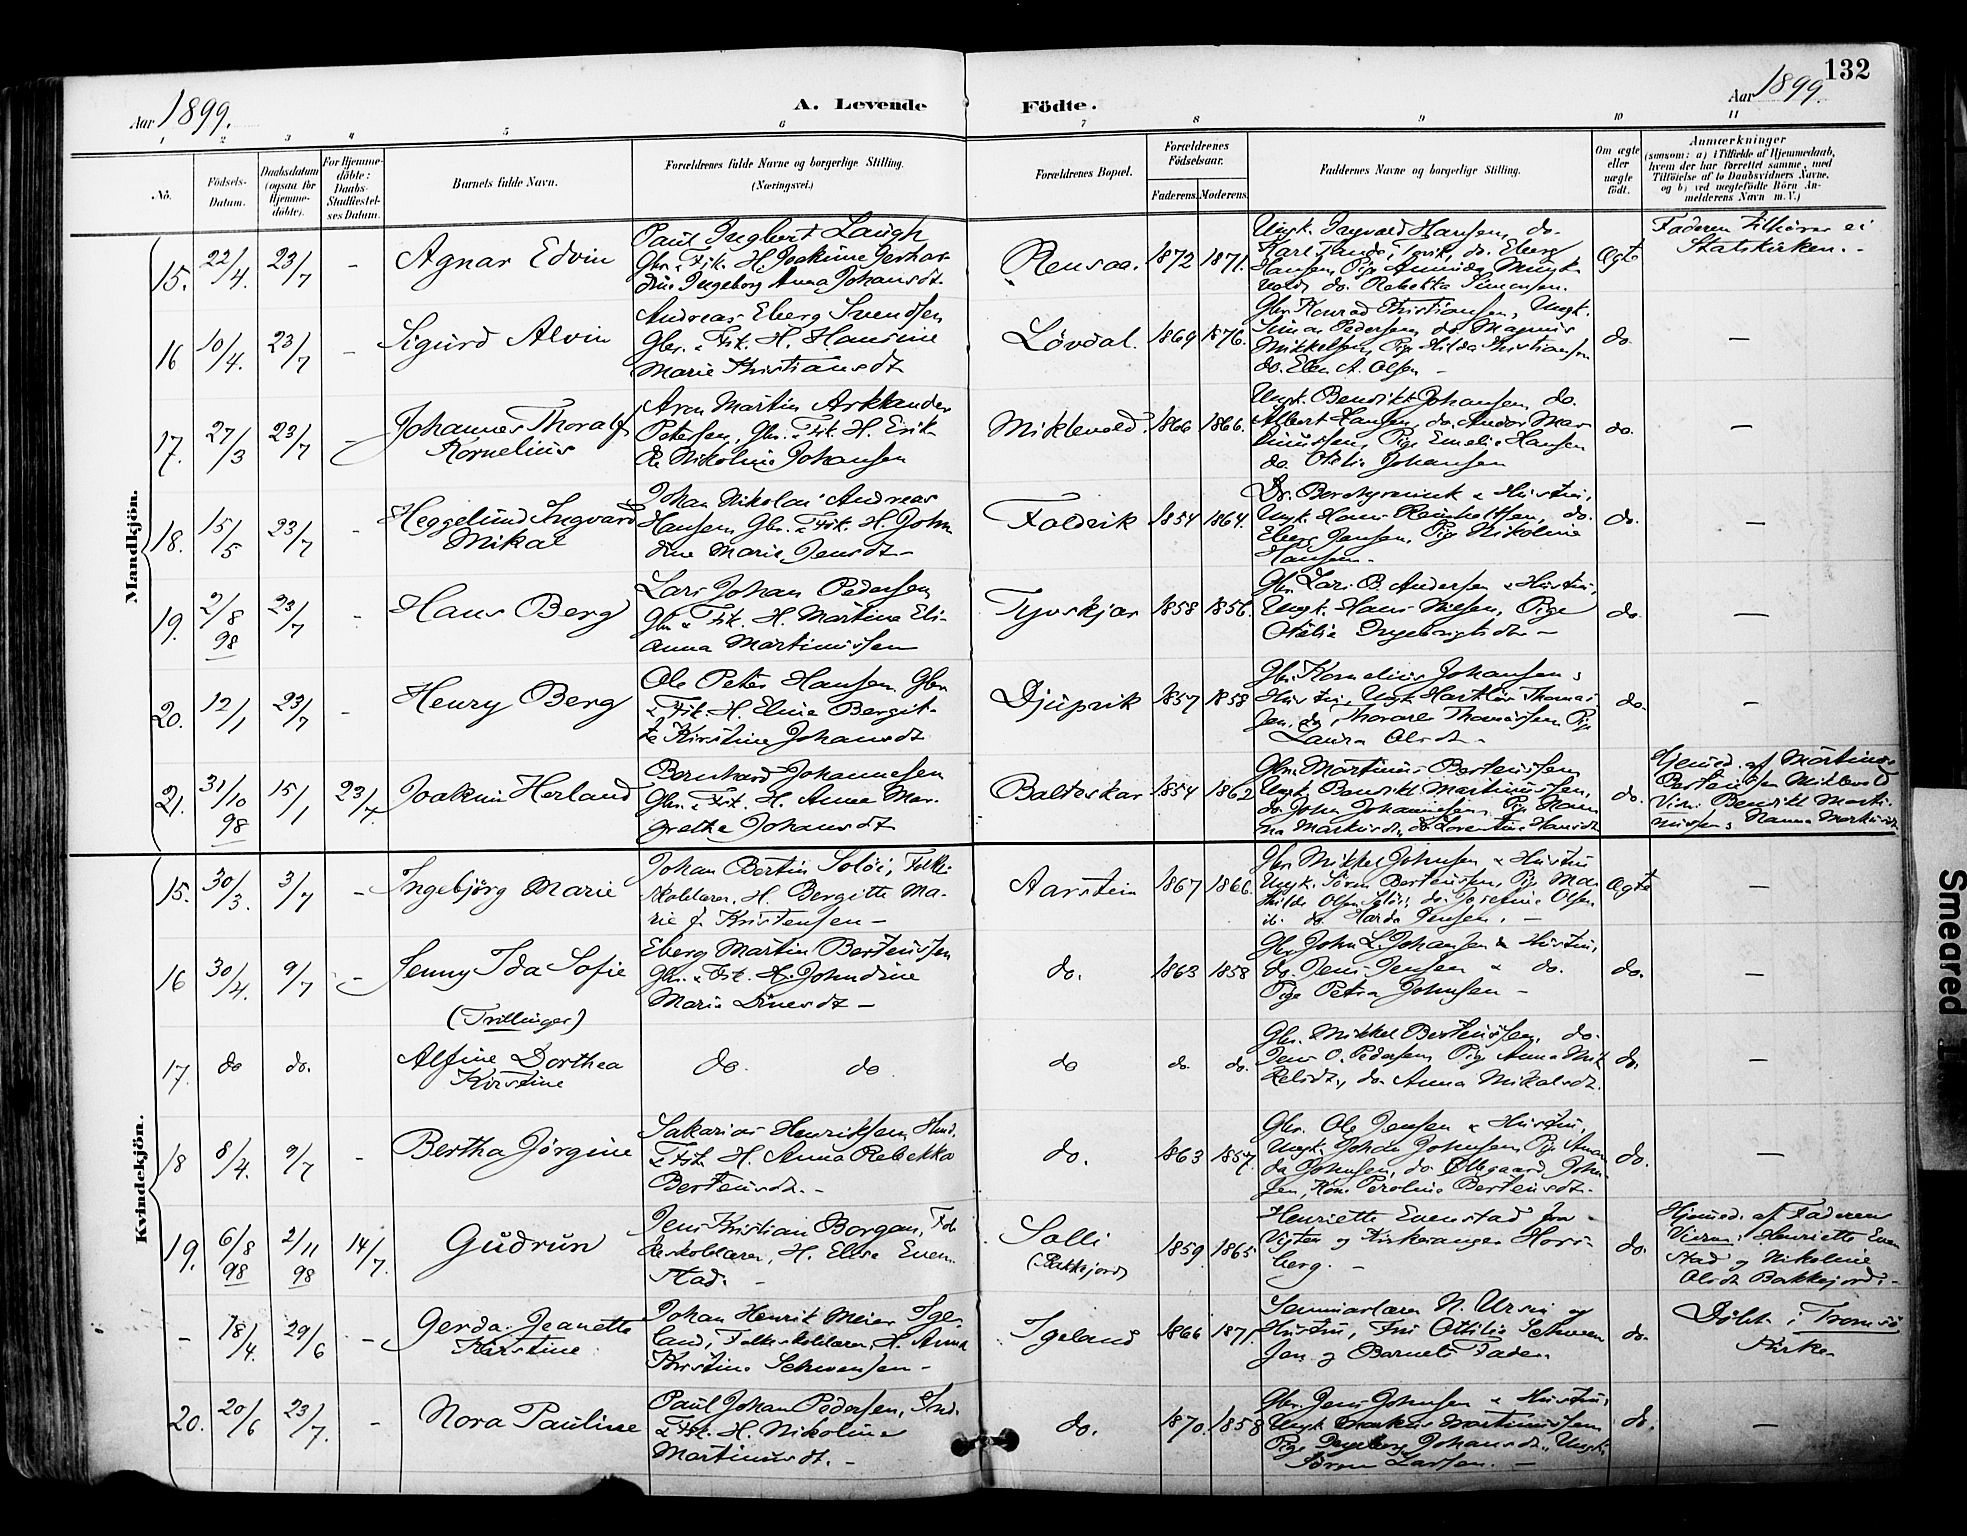 132
Aar 1899.
A. Levende
Födte.
Aar 1899.
1 2 3 4 5 6 7 8 9 10 11
No.
Födsels-
Datum.
Daabsdatum
(ogsaa for
Hjemme-
döbte).
For Hjemme-
döbte:
Daabs-
Stadfæstel-
ses Datum.
Barnets fulde Navn.
Forældrenes fulde Navne og borgerlige Stilling.
(Næringsvei.)
Forældrenes Bopæl.
Forældrenes
Födselsaar.
Faderens. Moderens.
Faddernes Navne og borgerlige Stilling.
Om ægte
eller
uægte
födt.
Anmærkninger
(saasom: a) i Tilfælde af Hjemmedaab,
hvem der har forrettet samme, med
Tilföielse af to Daabsvidners Navne,
og b) ved uægtefödte Börn An-
melderens Navn m. V.)
Mandkjön.
15. 22/4. 23/7 - Agnar Edvin
Paul Ingbert Laugh
Gbr. & Fisk. H. Joakime Gerhar-
dine Ingeborg Anna Johansdt.
Rensaa. 1872 1871.
Ungk. Ingvald Hansen, do.
Hansen, Pige
do. Rebekka Simonsen.
Ægte
Faderen tilhører ei
Statskirken. -
16 10/4. 23/7 - Sigurd Alvin
Andreas Eberg Svendsen
Gbr. & Fisk. H. Hansine
Marie Kristiansdt
Løvdal. 1869 1876.
Gbr. Konrad Christiansen, Ungk.
Simon Pedersen, do. Magnus
Mikkelsen, Pige Hilda Kristiansen
do. Elen A. Olsen -
do. -
17. 27/3 23/7 - Johannes Thoralf
Kornelius
Aron Martin Arkkander
Petersen, Gbr. & Fisk. H. Erik-
ke Nikoline Johansen
Miklevold. 1866 1866.
Ungk. Benedikt Johansen, do.
Albert Hansen, do. Andor Mar-
tinussen, Pige Emelie Hansen
do. Otelie Johansen
do. -
18. 15/5 23/7 - Heggelund Ingvard
Mikal
Johan Nikolai Andreas
Hansen, Gbr. & Fisk. H. John-
dine Marie Jensdt -
Foldvik 1854 1864.
Dr. & Hustru,
Ungk. Hans Reinholtsen, do.
Eberg Jensen, Pige Nikoline
Hansen. -
do. -
19. 2/8 98 23/7 - Hans Berg
Lars Johan Pedersen
Gbr. & Fisk. H. Martine Eli-
anna Martinussen
Tyvskjær 1858 1856.
Gbr. Lars B. Andersen & Hustru,
Ungk. Hans Nielsen, Pige
Otelie Ingebrigtsdt -
do. -
20. 12/1 23/7 - Henry Berg
Ole Peter Hansen, Gbr.
& Fisk. H. Eline Bergit-
te Kirstine Johansdt
Djupvik 1857 1858
Gbr. Kornelius Johansen &
Hustru, Ungk. Hartlov Thomas-
sen, do. Thorarer Thomassen Pige
Laura Olsdt -
do. -
21. 31/10 98 15/1 23/7. Joakim Herland
Bernhard Johannesen
Gbr. & Fisk. H. Anne Mar-
grethe Johansdt
Balteskar 1854 1862
Gbr. Martinus Berteussen
Ungk. Benedikt Martinussen,
do. John Johannesen, Pige Han-
na Markusdt, do. Lorentine Hansdt
do.
Hjemmed. af Martinus
Berteussen Miklevold
Vidn: Benedikt Marti-
nussen & Hanna Markusdt
Kvindekjön.
15. 30/3. 3/7 - Ingebjörg Marie
Johan Bertin Soløi, Folke-
skolelærer, H. Bergitte Ma-
rie f. Kristensen -
Aarstein 1867 1866.
Gbr. Mikkel Johnsen & Hustru
Ungk. Søren Berteussen, Pige Ma-
thilde Olsen Soløi, do. Josefine Olsen
ib. do. Harda Jensen. -
Ægte -
16 30/4. 9/7 - Jenny Ida Sofie
(Trillinger)
Eberg Martin Berteussen
Gbr. & Fisk. H. Johndine
Marie Dinesdt -
do. 1863 1858
Gbr. John L. Johansen & Hustru,
do. Jens Jensen & do.
Pige Petra Johnsen -
do. -
17. do do. Alfine Dorthea
Kirstine
do. do
do do. do.
Gbr. Mikkel Berteussen, do.
Jens O. Pedersen, Pige Anna Mik-
kelsdt., do. Anna Mikalsdt.
do. -
18 8/4. 9/7 - Bertha Jørgine
Sakarias Henriksen, Ind.
& Fisk H. Anna Rebekka
Berteusdt. -
do. 1863 1857.
Gbr. Ole Jensen & Hustru,
Ungk. Johan Johnsen, Pige Aman-
da Johnsen, do. Ollegaard John-
sen, Kone Peroline Berteusdt. -
do. -
19. 6/8 98 2/11 98 14/7. Gudrun
Jens Kristian Borgan, Fol-
keskolelærer, H. Elise Even-
stad. -
Solli
(Bakkejord)
1859. 1865
Henriette Evenstad fra
Vigten og Kirkesanger Hors-
berg. -
do.
Hjemmed: af Faderen
Vidne: Henriette Even
stad og Nikoline
Olsdt Bakkejord. -
- 18/4. 29/6 - Gerda Jeanette
Kirstine
Johan Henrik Meier Ige-
land, Folkeskolelærer, H. Anna
Kirstine Schwensen -
Igeland 1866 1871.
Seminarlærer N. Ursin og
Hustru, Frk Ottilie Schwen
sen og Barnets Fader.
do.
Døbt i Tromsø
Kirke
20. 20/6 23/7. - Nora Pauline
Paul Johan Pedersen, Ind.
& Fisk. H. Nikoline
Martinusdt. -
do. 1870. 1858
Gbr. Jens Johnsen & Hustru,
Ungk. Markus Martinussen
Pige Ingeborg Johansdt., Ungk.
Søren Larsen. -
do. -
Smeared